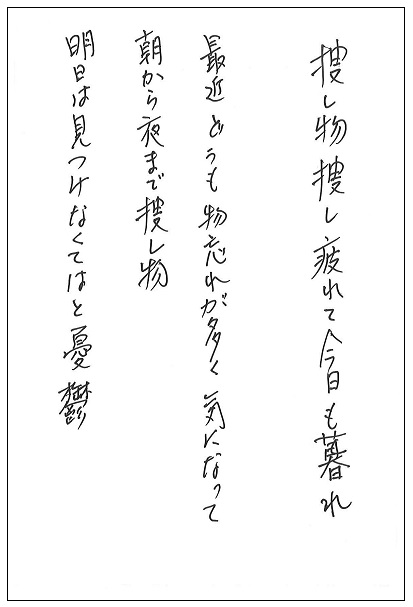 捜し物捜し疲れて今日も暮れ
最近どうも物忘れが多く気になって
朝から夜まで捜し物
明日は見つけなくてはと憂鬱